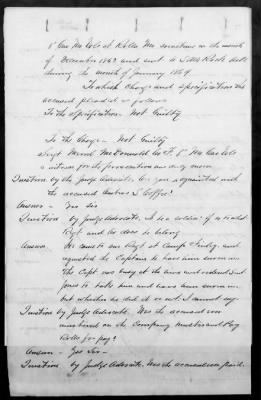 8" Cav Mo Vols at Rolla Mo sometime in the month
of December 1863 and sent to Little Rock Ark
during the month of January 1864.
To which charge and specification the
accused pleaded as follows
To the Specification. Not Guilty
To the Charge - Not Guilty
Sergt McDonald Co F. 8" Mo Cav Vols
a witness for the prosecution was duly sworn
Question by the Judge Advocate. Are you acquainted with
the accused
Answer - Yes Sir
Question by Judge Advocate. Is he a soldier if so what
Regt and Co does he belong
Answer. He came to our Regt at Camp and
requested the Captain to have him sworn in
The Capt was busy at the time and ordered Lieut
Jones to take him and have him sworn in
but whether he did it or not I cannot say
Question by Judge Advocate. Was the accused ever
mustered on the Company Muster and Pay
Rolls for pay?
Answer - Yes Sir -
Question by Judge Advocate. Was the accused ever paid